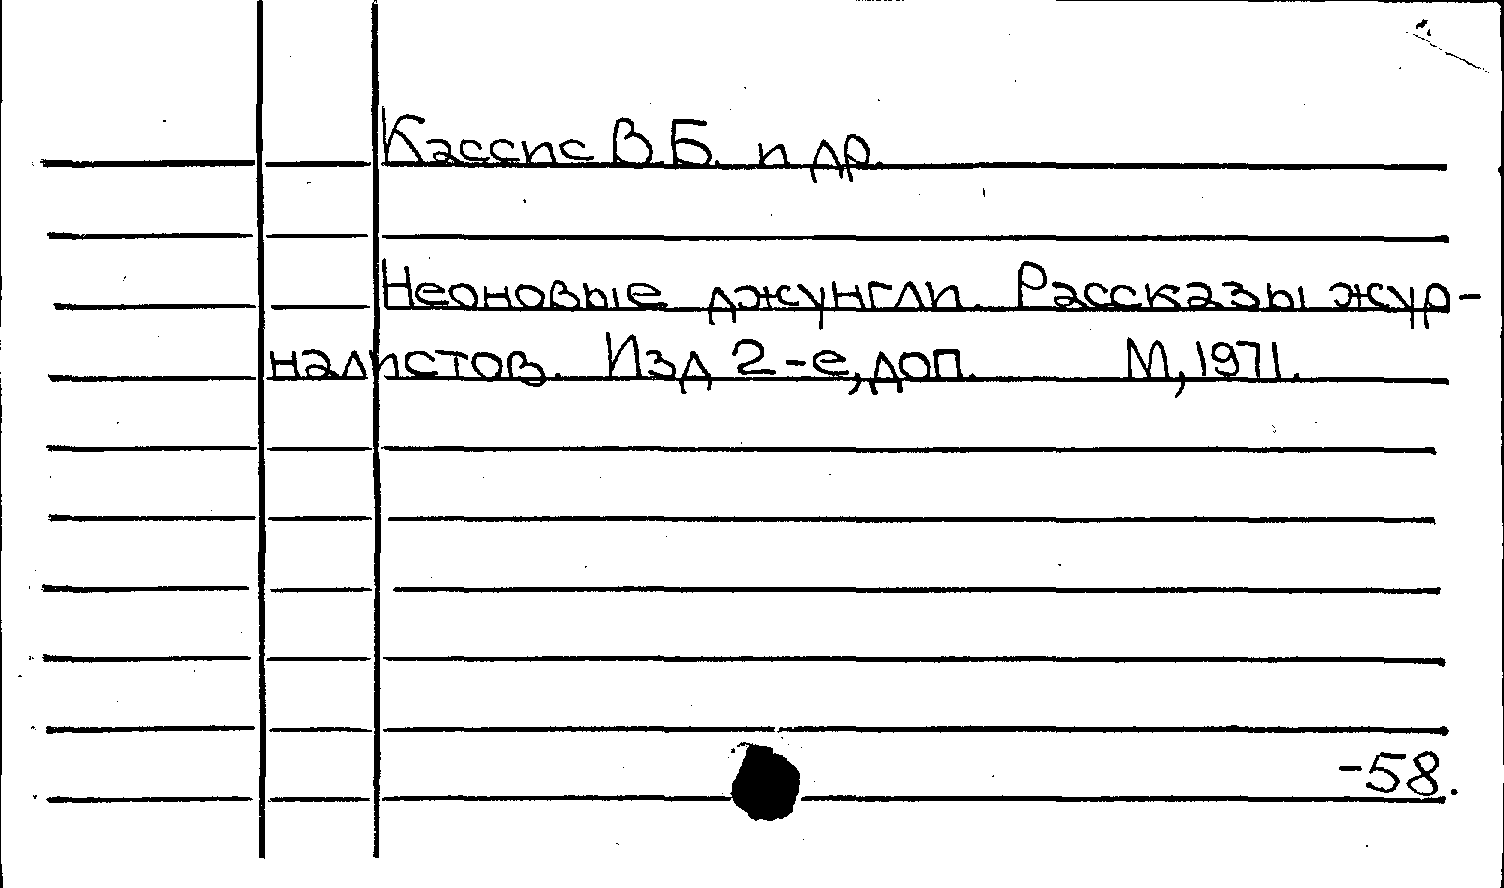 Кассис В.Б. и др.
Неоновые джунгли. Рассказы жур-
налистов. Изд 2-е, доп. М, 1971.
-58.